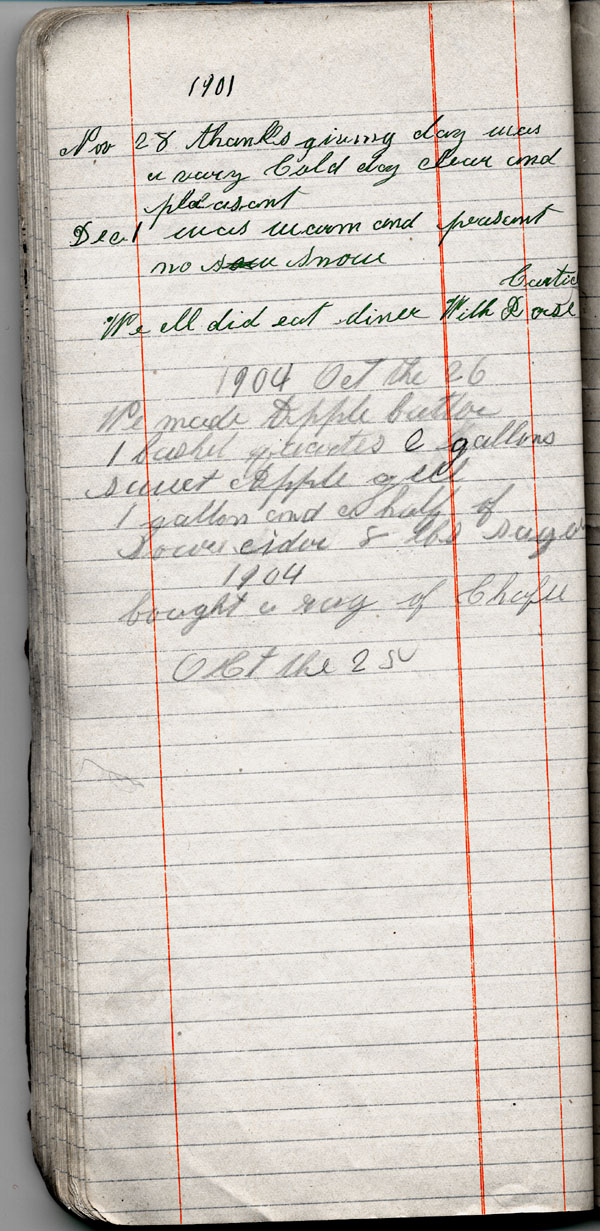 1901
Nov 28 thanksgiving day was
a vary Cold day clear and
pleasant
Dec 1 was warm and pesent
no snow
Curtis
We all did eat diner With
1904 Oct the 26
We made Apple butter
1 bushel 2 gallons
sweet Apple
1 gallon and a half of
cider 8 lbs suga
1904
bought a of
Oct the 25